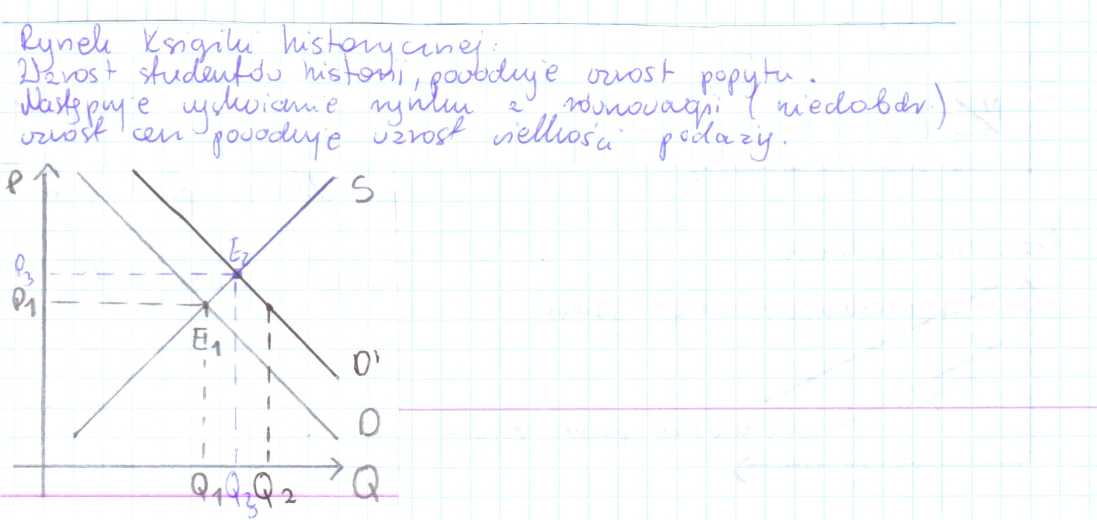 Rynek Książki historycznej.
Wzrost studentów historii, powoduje wzrost popytu.
Następuje wychwianie rynku z równowagi (niedobór)
wzrost cen powoduje wzrost wielkości podaży.
P
S
E2
P3
P1
E1
D'
D
Q1 Q3 Q2 Q